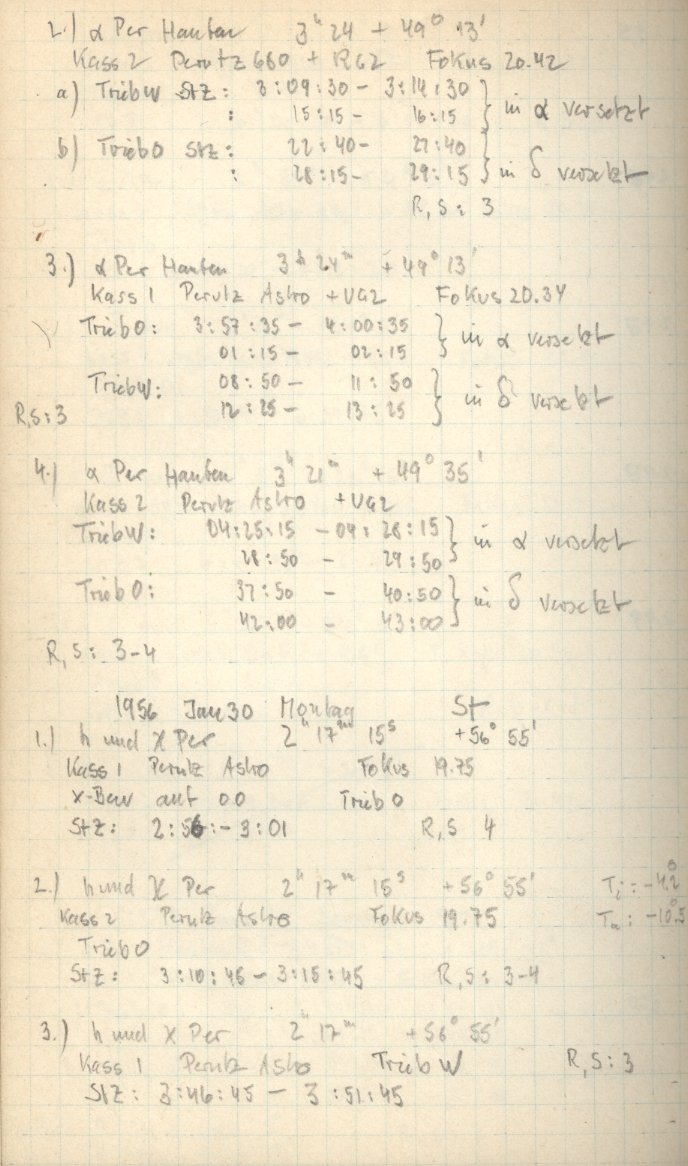 2.) α Per Haufen 3ʰ 24 + 49° 13'
Kass 2 Perutz 660 + RG2 Fokus 20.42
a) Trieb W StZ: 3:09:30 - 3:14:30 } in α versetzt
: 15:15 - 16:15
b) Trieb O StZ: 22:40 - 27:40 } in δ versetzt
: 28:15 - 29:15
R, S: 3
3.) α Per Haufen 3ʰ 24ᵐ + 49° 13'
Kass 1 Perutz Astro + UG2 Fokus 20.34
Trieb O: 3:57:35 - 4:00:35 } in α versetzt
01:15 - 02:15
Trieb W: 08:50 - 11:50 } in δ versetzt
12:25 - 13:25
R,S:3
4.) α Per Haufen 3ʰ 21ᵐ + 49° 35'
Kass 2 Perutz Astro + UG2
Trieb W: 04:25:15 - 04:28:15 } in α versetzt
28:50 - 29:50
Trieb O: 37:50 - 40:50 } in δ versetzt
42:00 - 43:00
R, S: 3-4
1956 Jan 30 Montag St
1.) h und χ Per 2ʰ 17ᵐ 15ˢ +56° 55'
Kass 1 Perutz Astro Fokus 19.75
x-Bew auf 00 Trieb O
StZ: 2:56: - 3:01 R, S 4
2.) h und χ Per 2ʰ 17ᵐ 15ˢ +56° 55' Tᵢ: -4.2°
Kass 2 Perutz Astro Fokus 19.75 Tₐ: -10.5
Trieb O
StZ: 3:10:45 - 3:15:45 R, S: 3-4
3.) h und χ Per 2ʰ 17ᵐ +56° 55'
Kass 1 Perutz Astro Trieb W R, S: 3
StZ: 3:46:45 - 3:51:45